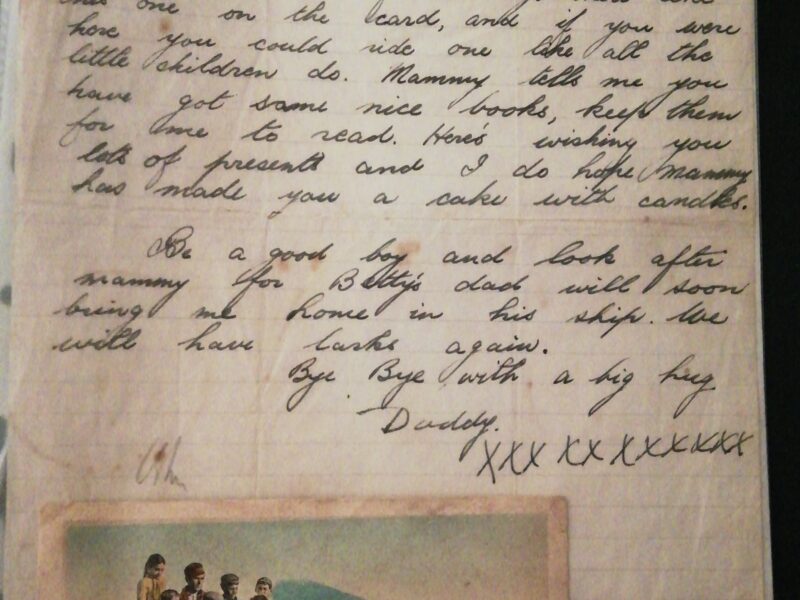 one on the card, and if you were
here you could ride one like all the
little children do. Mammy tells me you
have got some nice books, keep them
for me to read. Here's wishing you
lots of presents and I do hope mammy
has made you a cake with candles.
Be a good boy and look after
mammy for Betty's dad will soon
bring me home in his ship. We
will have larks again.
Bye Bye with a big hug
Daddy.
XXX XX XXXXXXX